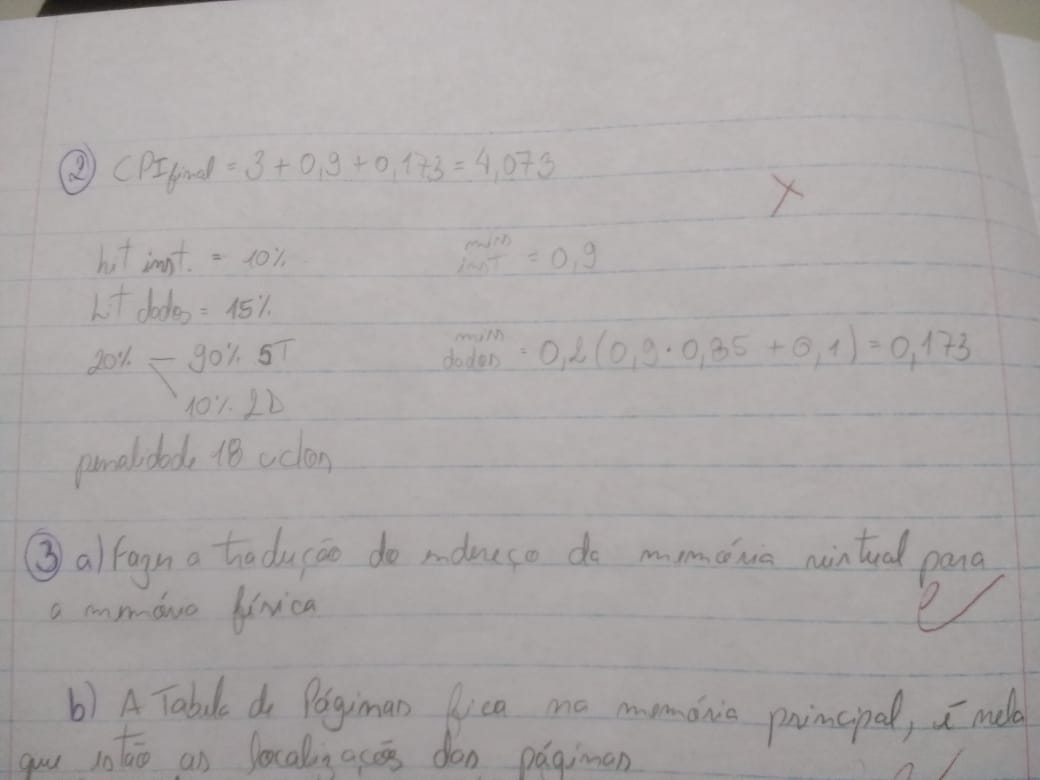 2 CPIfinal = 3 + 0,9 + 0,173 = 4,073
hit inst. = 10% miss inst = 0,9
hit dados = 15%
20% — 90% ST miss dados = 0,2(0,9 · 0,85 + 0,1) = 0,173
10% 2D
penalidade 18 ciclos
3 a) Fazer a tradução do endereço da memória virtual para
a memória física
b) A Tabela de Páginas fica na memória principal, é nela
que estão as localizações das páginas